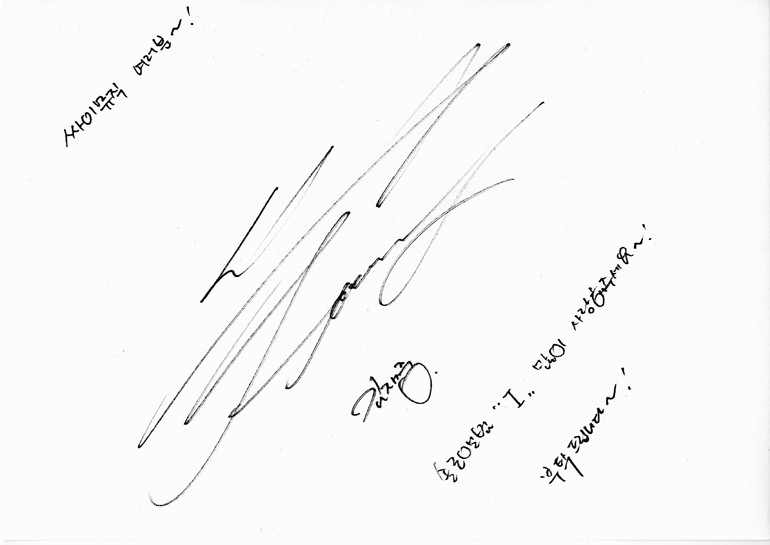 싸이뮤직 여러분~!
김재중.
솔로앨범 "I" 많이 사랑해주세요~!
부탁드립니다~!